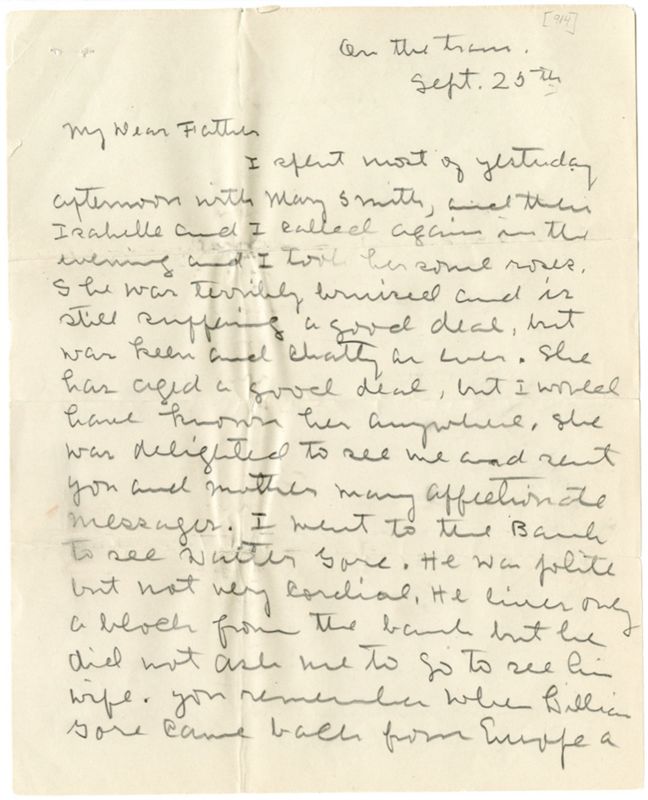 [914]
On the train.
Sept. 25th
My Dear Father
I spent most of yesterday
afternoon with Mary Smith, and then
Isabelle and I called again in the
evening and I took her some roses.
She was terribly bruised and is
still suffering a good deal, but
was keen and chatty as ever. She
has aged a good deal, but I would
have known her anywhere. She
was delighted to see me and sent
you and mother many affectionate
messages. I went to the Bank
to see Walter Gore. He was polite
but not very cordial. He lives only
a block from the bank but he
did not ask me to go to see his
wife. You remember when Lillian
Gore came back from Europe a